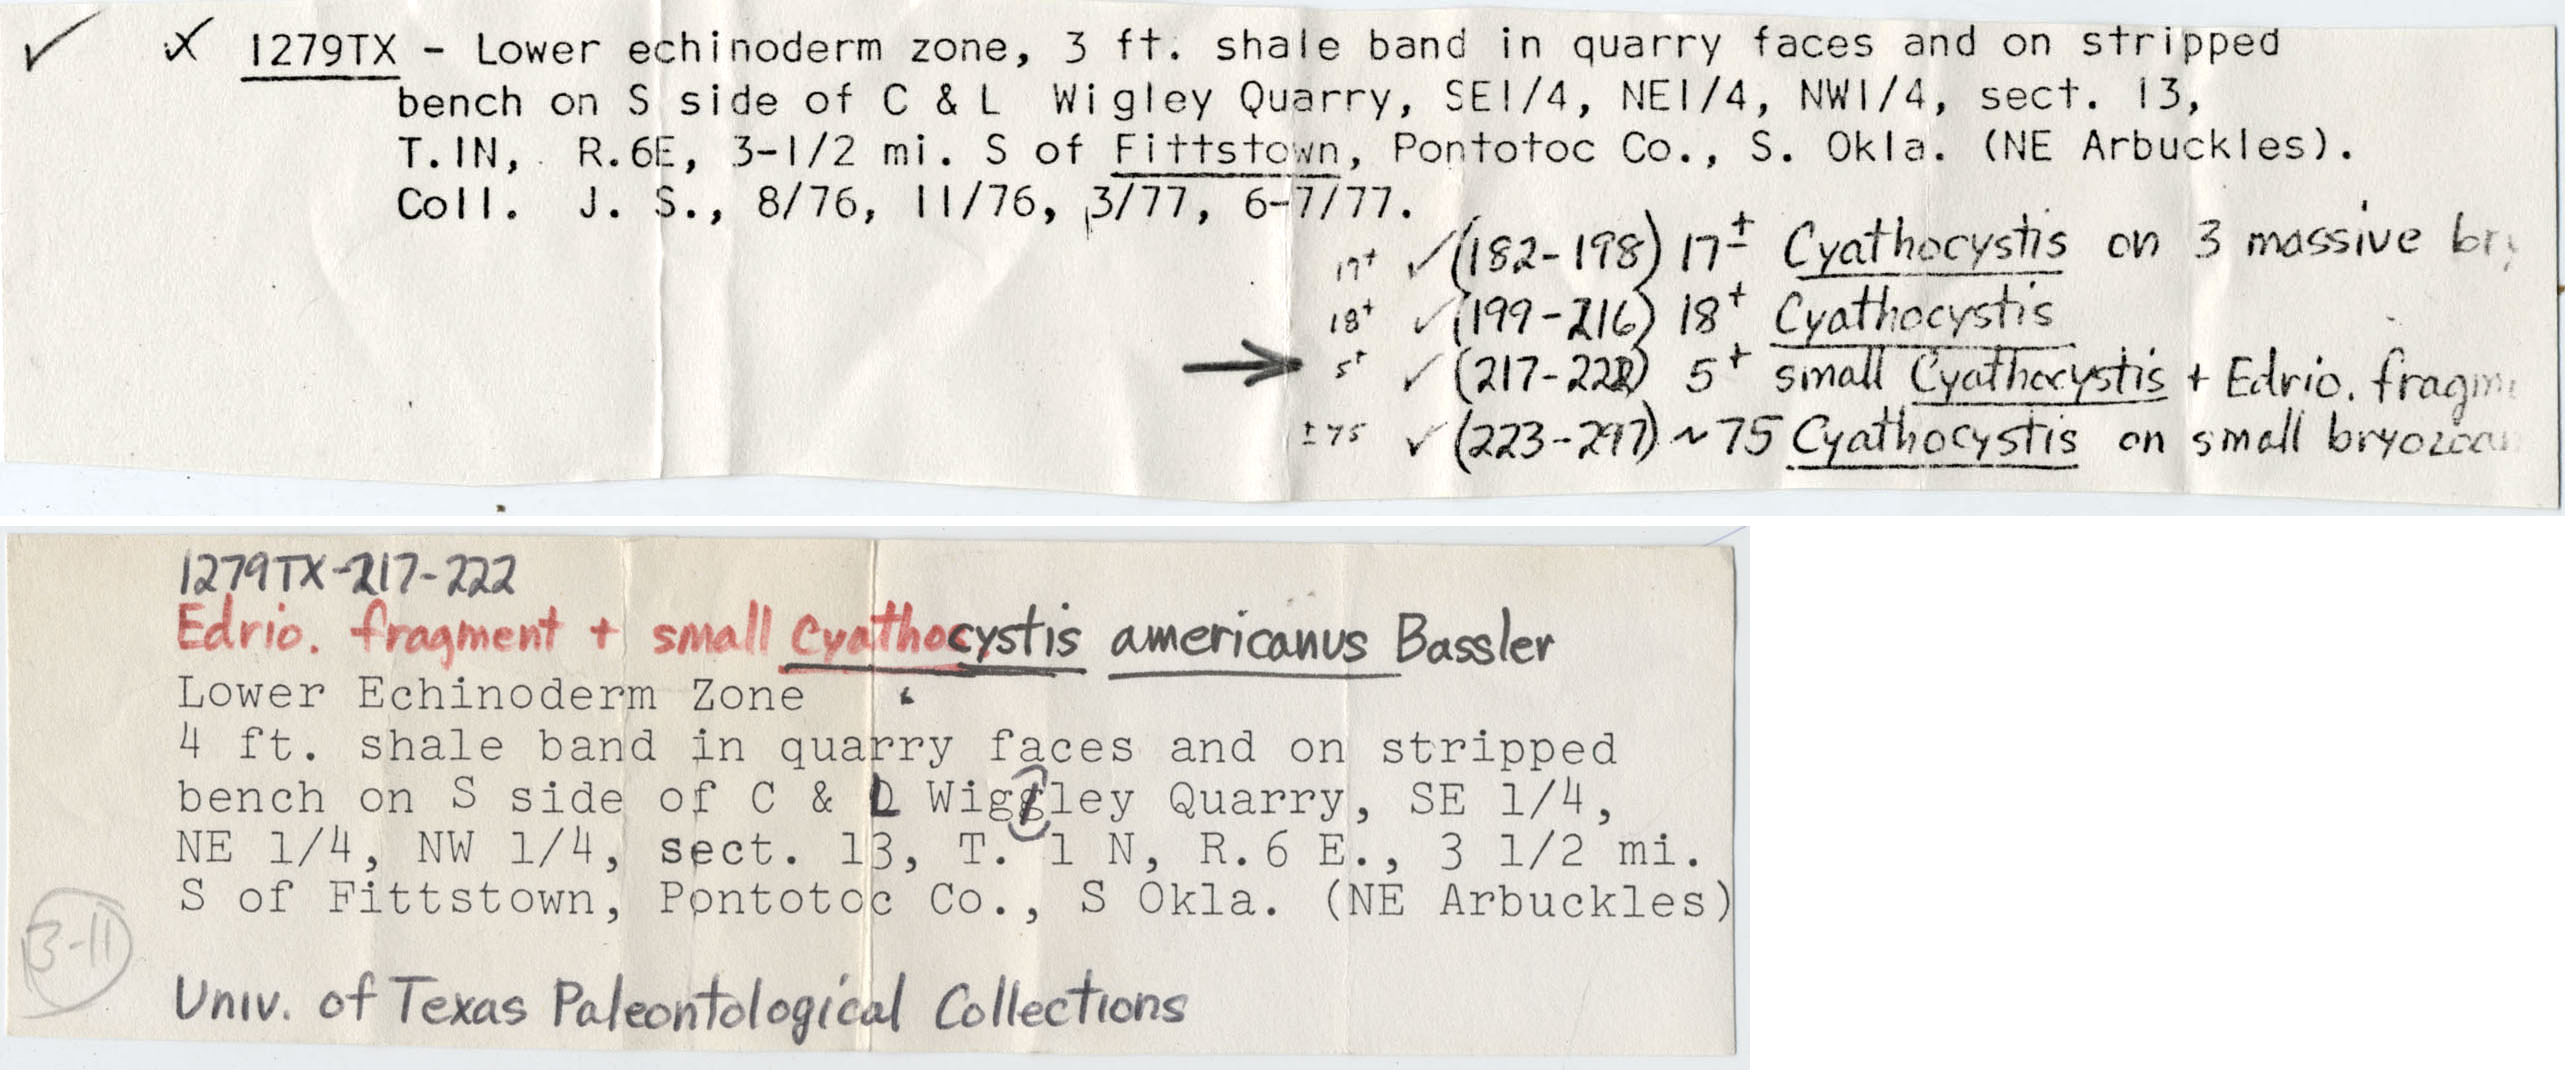 ✓ X 1279TX - Lower echinoderm zone, 3 ft. shale band in quarry faces and on stripped
bench on S side of C & L Wigley Quarry, SE1/4, NE1/4, NW1/4, sect. 13,
T.1N, R.6E, 3-1/2 mi. S of Fittstown, Pontotoc Co., S. Okla. (NE Arbuckles).
Coll. J. S., 8/76, 11/76, 3/77, 6-7/77.
17+ ✓ (182-198) 17± Cyathocystis on 3 massive bry
18+ ✓ (199-216) 18+ Cyathocystis
→ 5+ ✓ (217-222) 5+ small Cyathocystis + Edrio. fragm
±75 ✓ (223-297) ~75 Cyathocystis on small bryozoan
1279TX-217-222
Edrio. fragment + small Cyathocystis americanus Bassler
Lower Echinoderm Zone
4 ft. shale band in quarry faces and on stripped
bench on S side of C & L Wigley Quarry, SE 1/4,
NE 1/4, NW 1/4, sect. 13, T. 1 N, R.6 E., 3 1/2 mi.
S of Fittstown, Pontotoc Co., S Okla. (NE Arbuckles)
3-11
Univ. of Texas Paleontological Collections